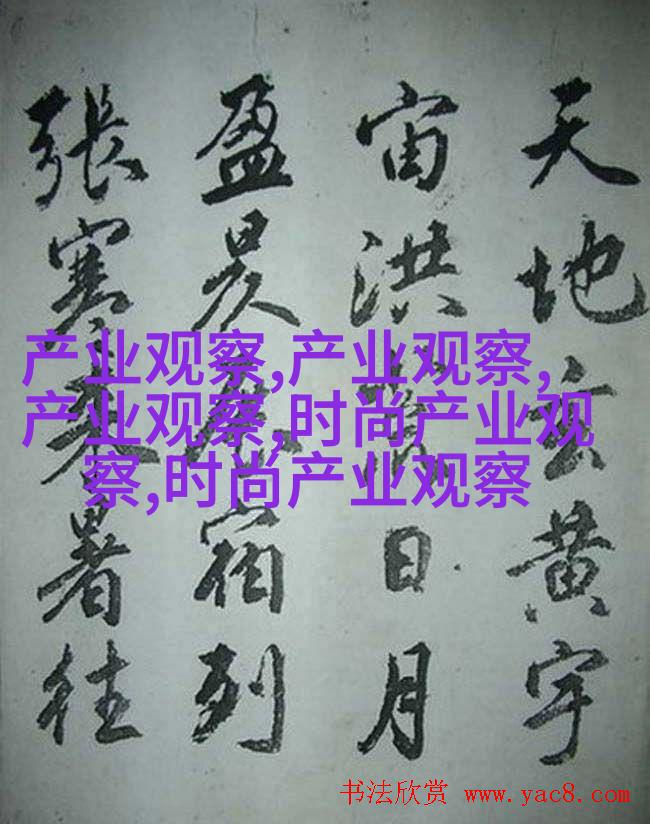 天地玄黄宇
宙洪荒日月
盈昃宿列
張寒来暑往
产业观察,产业观察,
产业观察,时尚产业观
察,时尚产业观察
书法欣赏 www.yac8.com